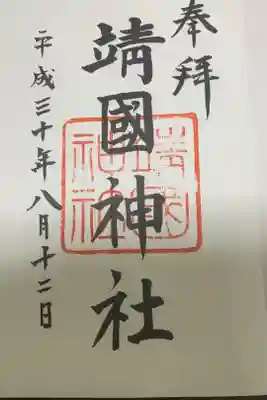 奉拜
靖國神社
平成三十年八月十二日